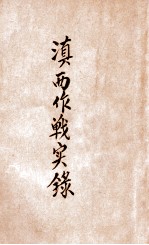 滇西作戰实錄